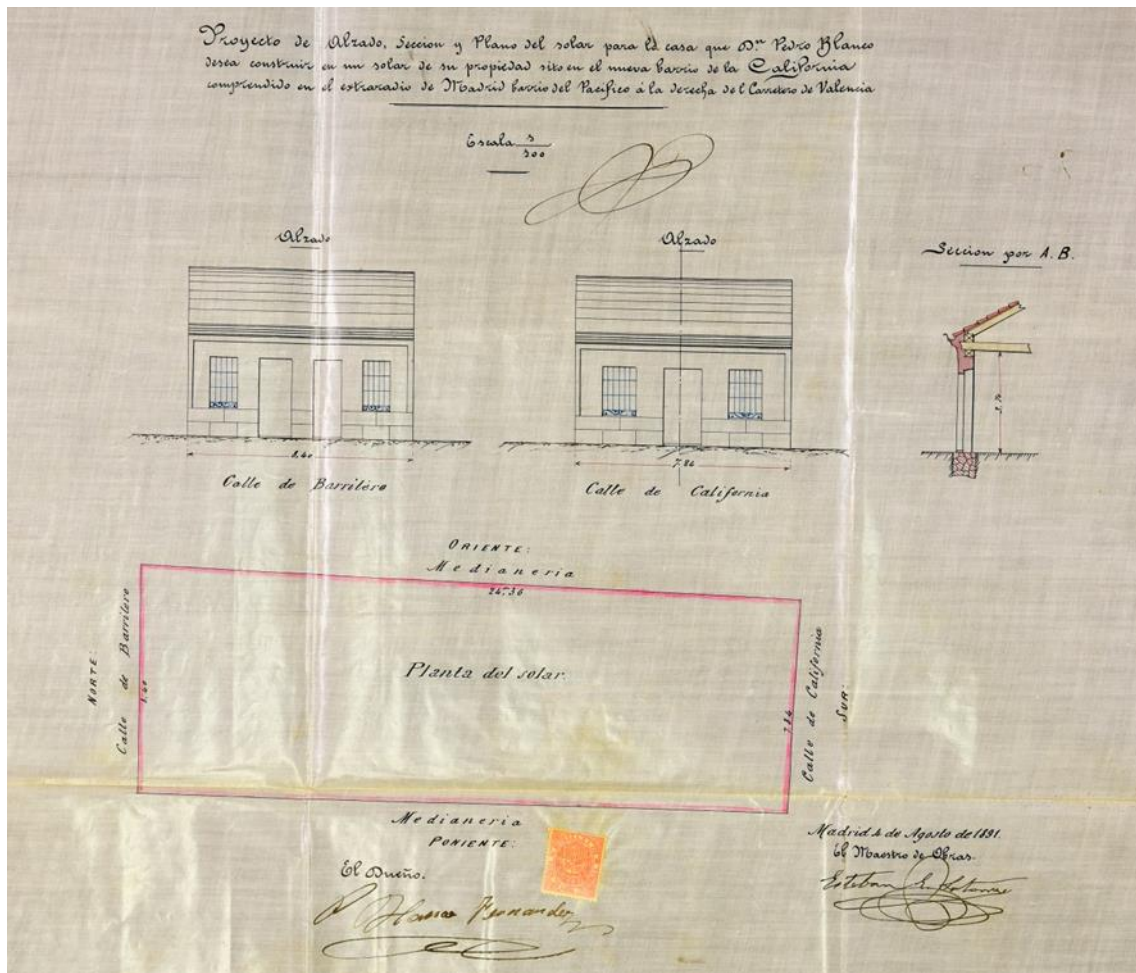 Proyecto de Alzado, Seccion y Plano del solar para la casa que Dn Pedro Blanco
desea construir en un solar de su propiedad sito en el nueva barrio de la California
comprendido en el extraradio de Madrid barrio del Pacifico á la derecha del Carretera de Valencia
Escala 1/100
Alzado
Alzado
Seccion por A. B.
8,40
7,84
Calle de Barrilero
Calle de California
ORIENTE:
Medianeria
24,36
NORTE:
Calle de Barrilero
8,40
Planta del solar.
7,84
Calle de California
SUR:
Medianeria
PONIENTE:
Madrid 4 de Agosto de 1891.
El Maestro de Obras.
Esteban
El Dueño.
P. Blanco Fernandez